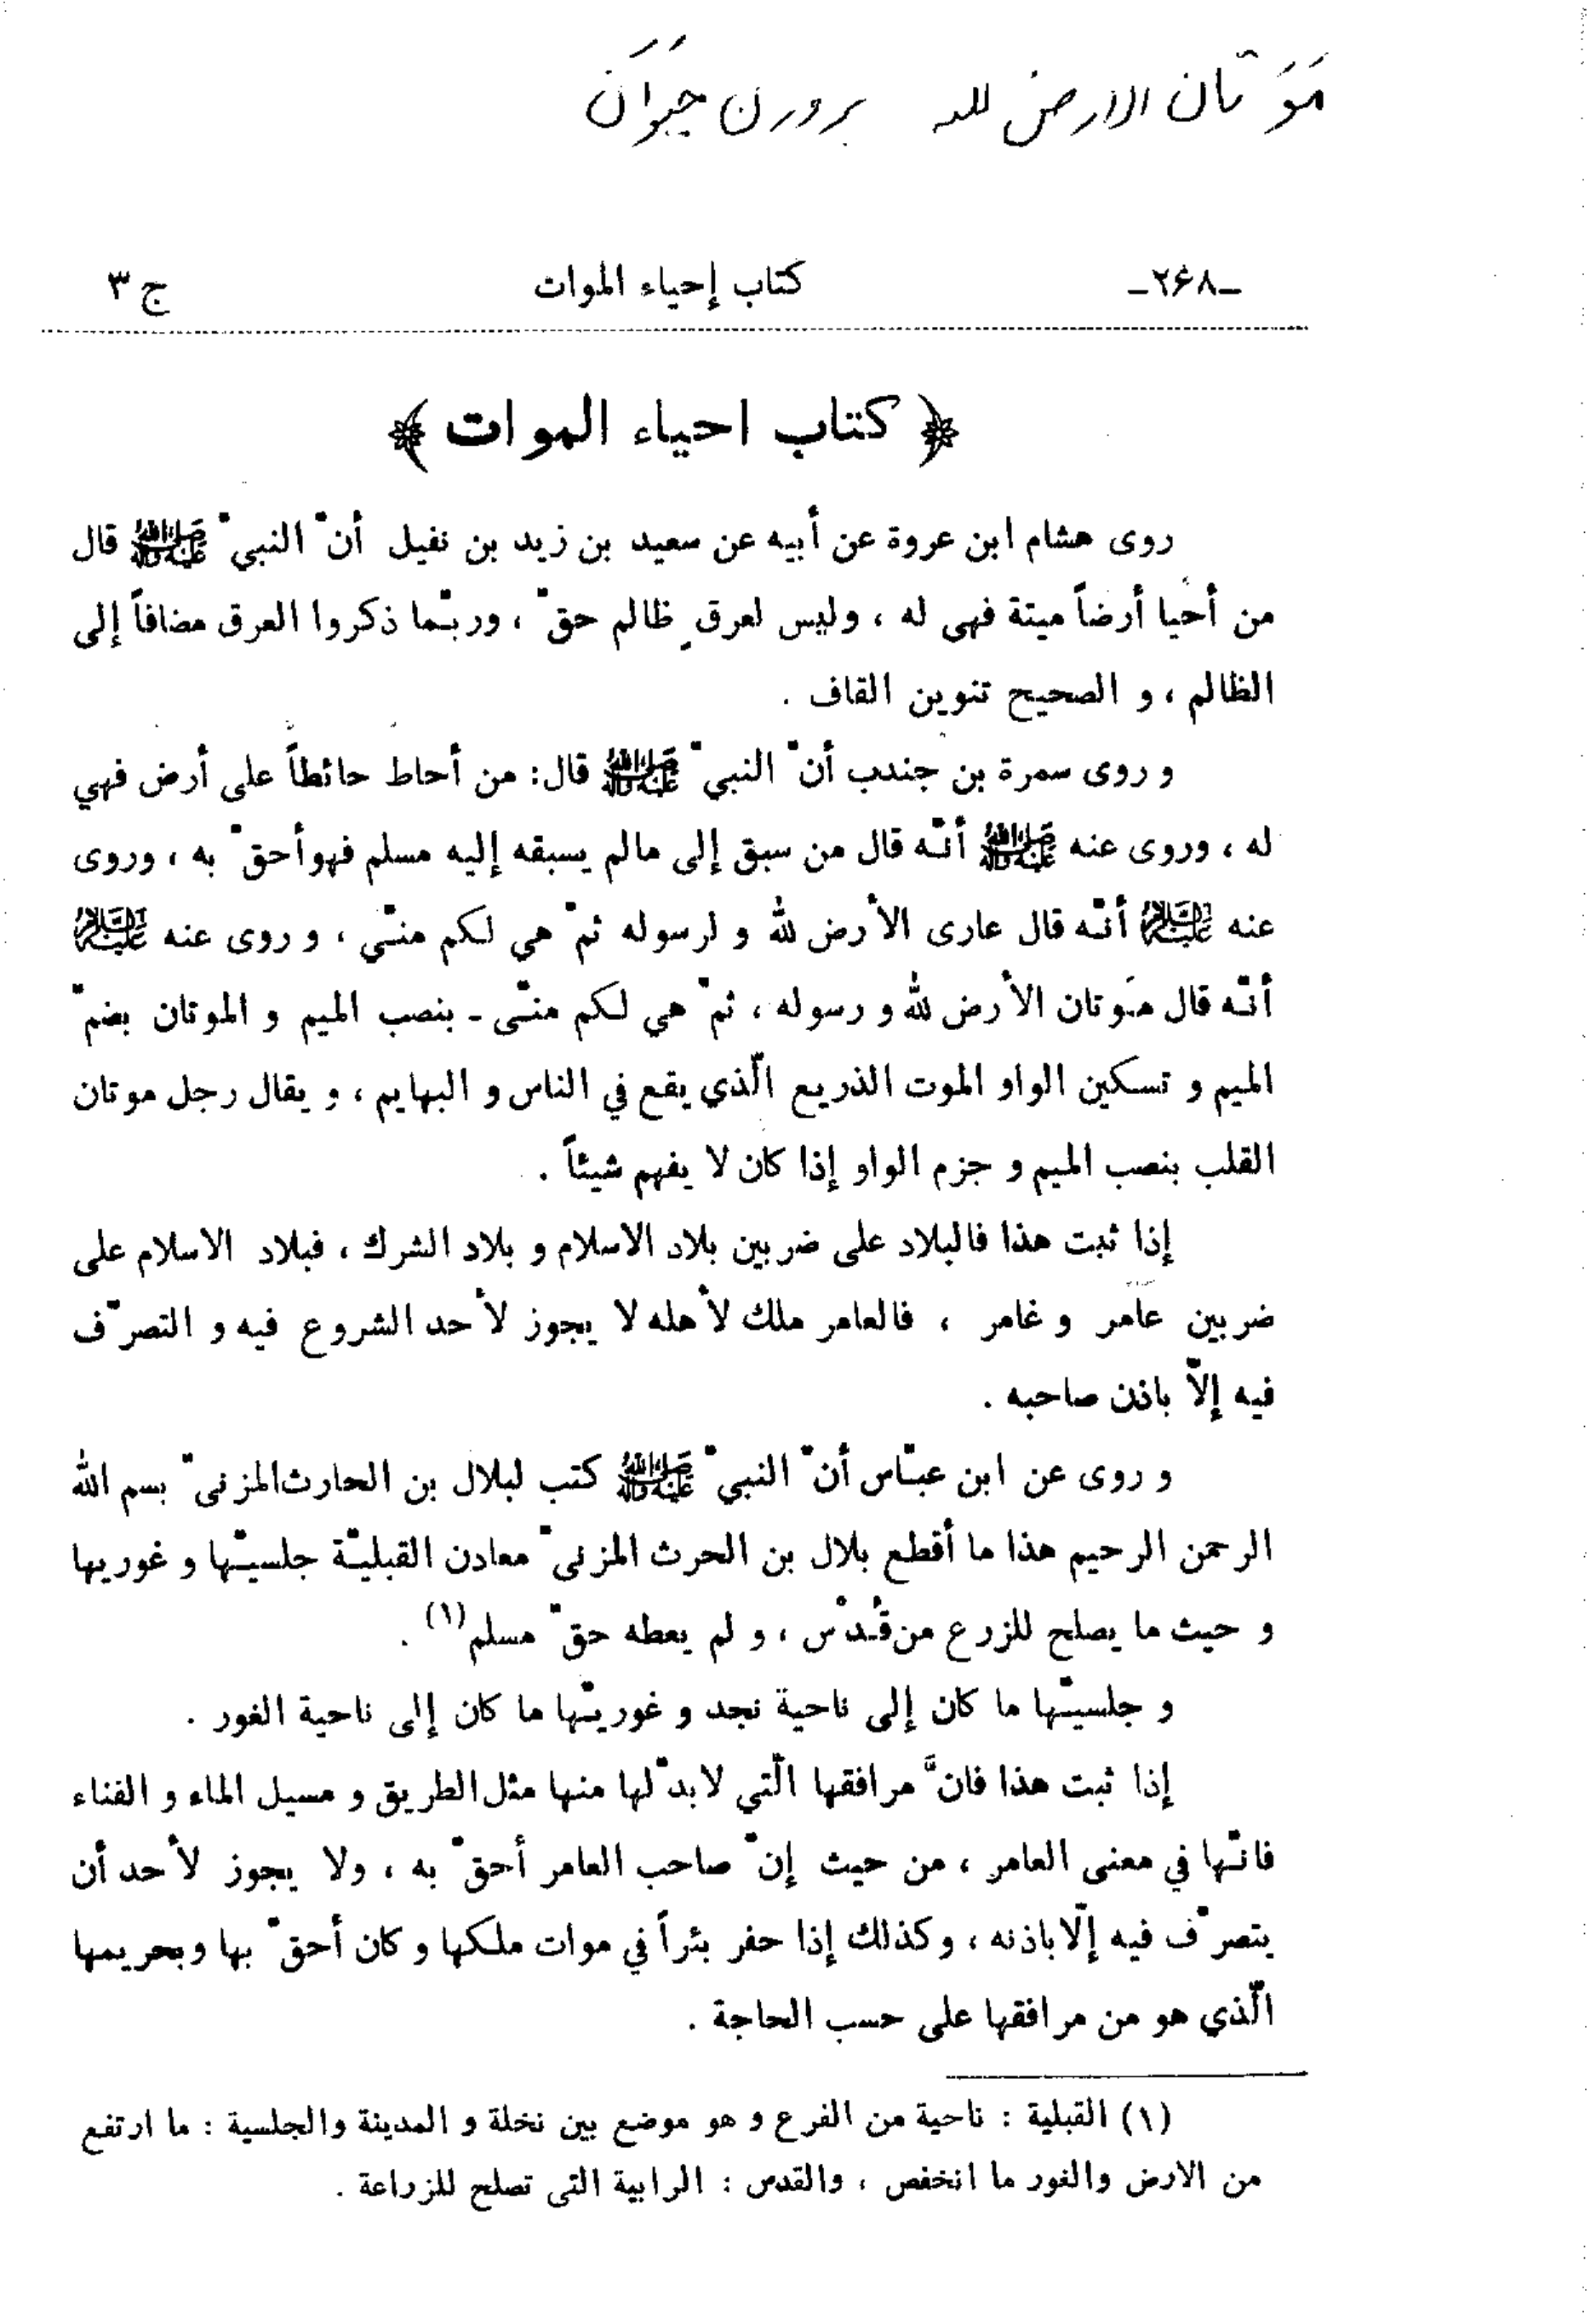 مَوَتان الارض لله برورن حَیَوَان
ـ۲۶۸ـ كتاب إحياء الموات ج ۳
﴿ كتاب احياء الموات ﴾
روى هشام ابن عروة عن أبيه عن سعيد بن زيد بن نفيل أنّ النبيّ صلى الله عليه وآله قال
من أحيا أرضاً ميتة فهى له ، وليس لعرقٍ ظالم حقّ ، وربّما ذكروا العرق مضافاً إلى
الظالم ، و الصحيح تنوين القاف .
و روى سمرة بن جندب أنّ النبيّ صلى الله عليه وآله قال: من أحاط حائطاً على أرض فهي
له ، وروى عنه صلى الله عليه وآله أنّه قال من سبق إلى مالم يسبقه إليه مسلم فهوأحقّ به ، وروى
عنه عليه السلام أنّه قال عارى الأرض لله و لرسوله ثمّ هي لكم منّي ، و روى عنه عليه السلام
أنّه قال مَوتان الأرض لله و رسوله ، ثمّ هي لكم منّى ـ بنصب الميم و الموتان بضمّ
الميم و تسكين الواو الموت الذريع الّذي يقع في الناس و البهايم ، و يقال رجل موتان
القلب بنصب الميم و جزم الواو إذا كان لا يفهم شيئاً .
إذا ثبت هذا فالبلاد على ضربين بلاد الاسلام و بلاد الشرك ، فبلاد الاسلام على
ضربين عامر و غامر ، فالعامر ملك لأهله لا يجوز لأحد الشروع فيه و التصرّف
فيه إلاّ باذن صاحبه .
و روى عن ابن عبّاس أنّ النبيّ صلى الله عليه وآله كتب لبلال بن الحارث المزنىّ بسم الله
الرحمن الرحيم هذا ما أقطع بلال بن الحرث المزنىّ معادن القبليّة جلسيّها و غوريها
و حيث ما يصلح للزرع من قُدْس ، و لم يعطه حقّ مسلم (۱) .
و جلسيّها ما كان إلى ناحية نجد و غوريّها ما كان إلى ناحية الغور .
إذا ثبت هذا فانَّ مرافقها الّتي لابدّ لها منها مثل الطريق و مسيل الماء و الفناء
فانّها في معنى العامر ، من حيث إنّ صاحب العامر أحقّ به ، ولا يجوز لأحد أن
يتصرّف فيه إلّا باذنه ، وكذلك إذا حفر بئراً في موات ملكها و كان أحقّ بها وبحريمها
الّذي هو من مرافقها على حسب الحاجة .
(۱) القبلية : ناحية من الفرع و هو موضع بين نخلة و المدينة والجلسية : ما ارتفع
من الارض والغور ما انخفص ، والقدس : الرابية التى تصلح للزراعة .